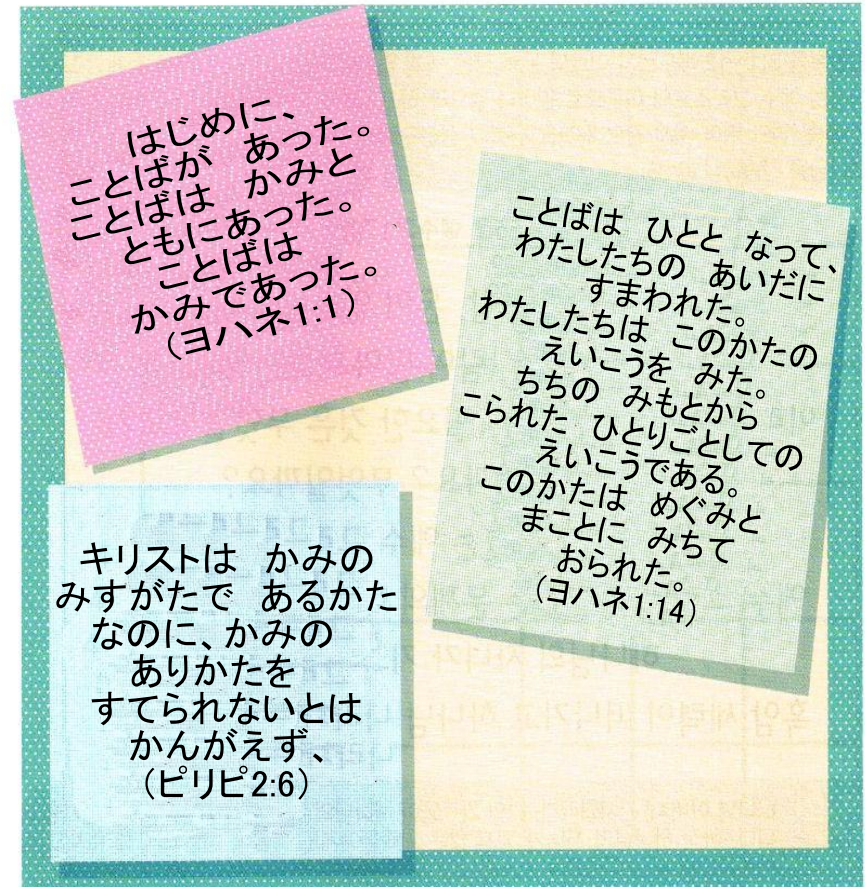 はじめに、
ことばが　あった。
ことばは　かみと
ともにあった。
ことばは
かみであった。
(ヨハネ1:1)
ことばは　ひとと　なって、
わたしたちの　あいだに
すまわれた。
わたしたちは　このかたの
えいこうを　みた。
ちちの　みもとから
こられた　ひとりごとしての
えいこうである。
このかたは　めぐみと
まことに　みちて
おられた。
(ヨハネ1:14)
キリストは　かみの
みすがたで　あるかた
なのに、かみの
ありかたを
すてられないとは
かんがえず、
(ピリピ2:6)